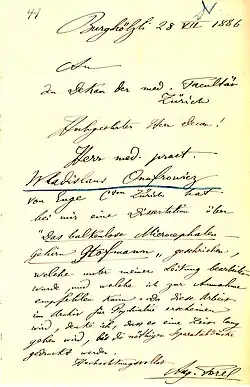 41
Burghölzli 28 VII 1886
An
den Dekan der med. Facultät
Zürich
Hochgeehrter Herr Decan!
Herr med. pract.
Wladislaus Onufrowicz
von Enge Ct von Zürich hat
bei mir eine Dissertation über
"Das balkenlose Microcephalen-
gehirn Hofmann" geschrieben,
welche unter meiner Leitung bearbeitet
wurde und welche ich zur Annahme
empfehlen kann. Da diese Arbeit
im Archiv für Psychiatrie erscheinen
wird, denke ich, dass es eine Zeit lang
gehen wird, bis die nöthigen Separatabdrücke
gedruckt werden.
Hochachtungsvollst
Aug. Forel